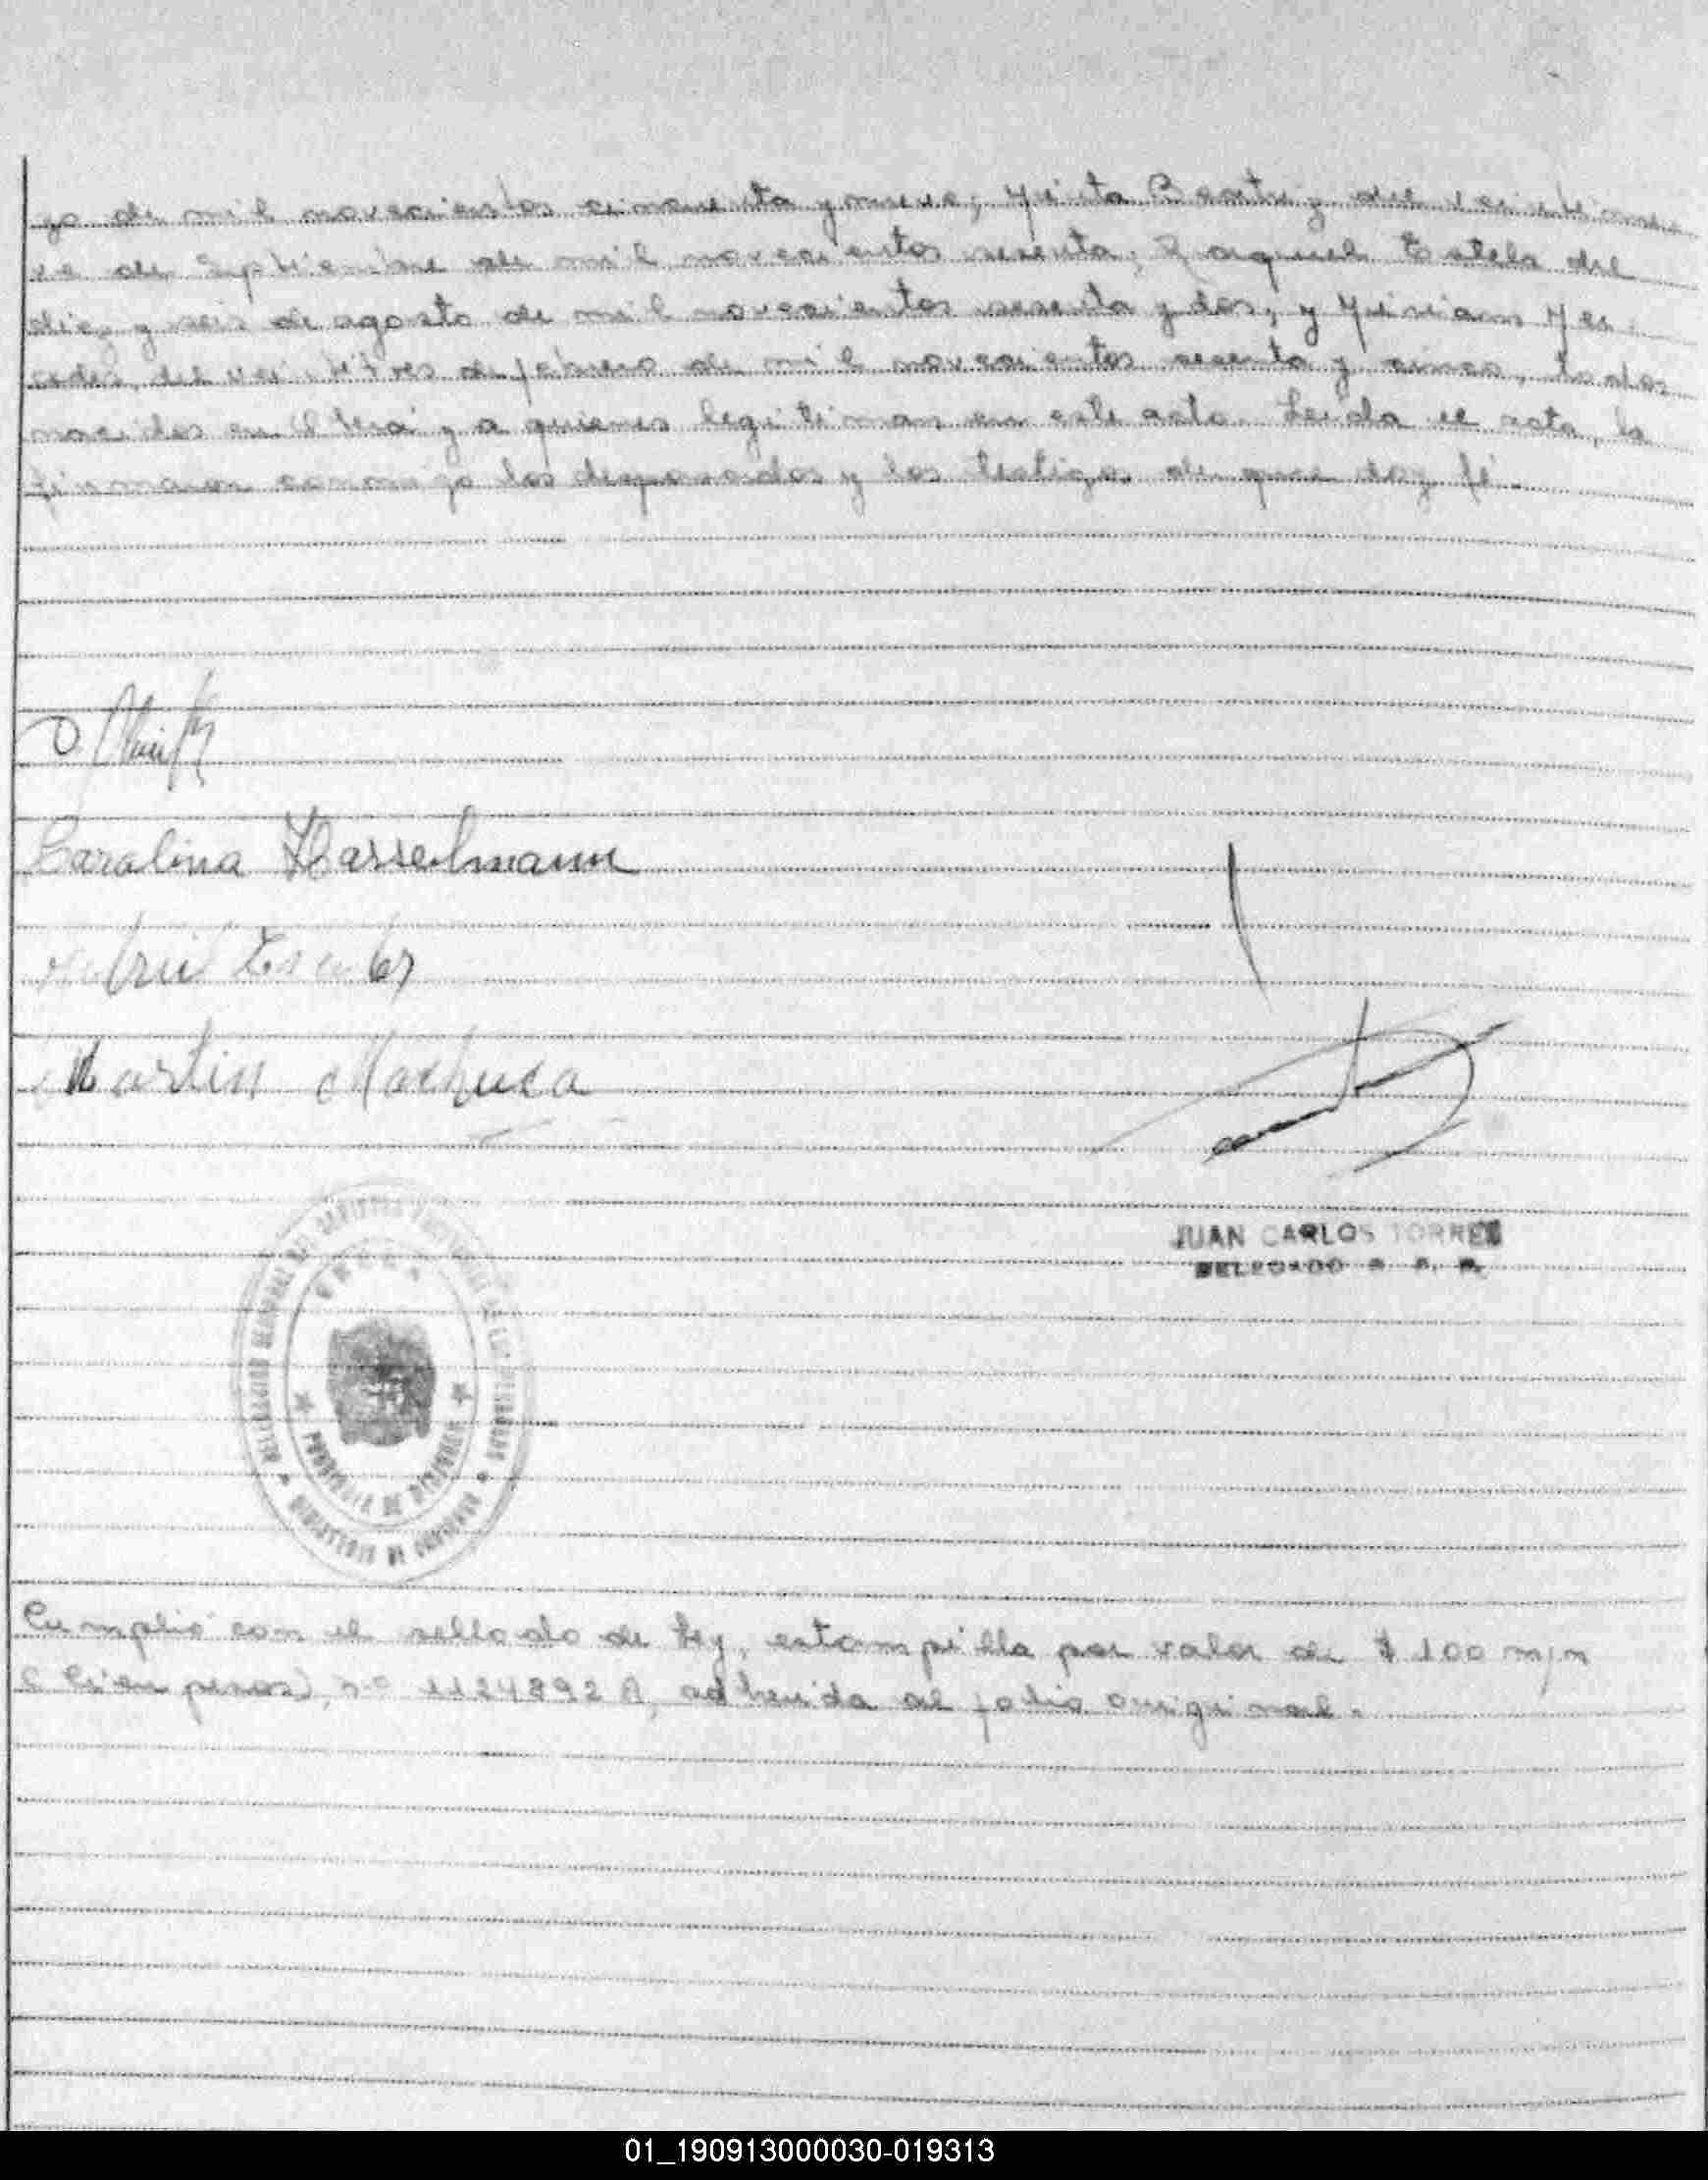 yo de mil novecientos cincuenta y nueve; Mirta Beatriz, del veintinue
ve de septiembre de mil novecientos sesenta; Raquel Estela del
diez y seis de agosto de mil novecientos sesenta y dos; y Miriam Mer
cedes, del veintitres de febrero de mil novecientos sesenta y cinco, todos
nacidos en y a quienes legitiman en este acto. Leida el acta, la
firmaron conmigo los desposados y los testigos de que doy fé.
Carolina Hasselmann
Martin Machuca
JUAN CARLOS TORRES
DELEGADO
PROVINCIA DE MISIONES
MINISTERIO DE GOBIERNO
Cumplió con el sellado de ley, estampilla por valor de $ 100 m/n
(Cien pesos), nº 1124892 A, adherida al folio original.
01_190913000030-019313